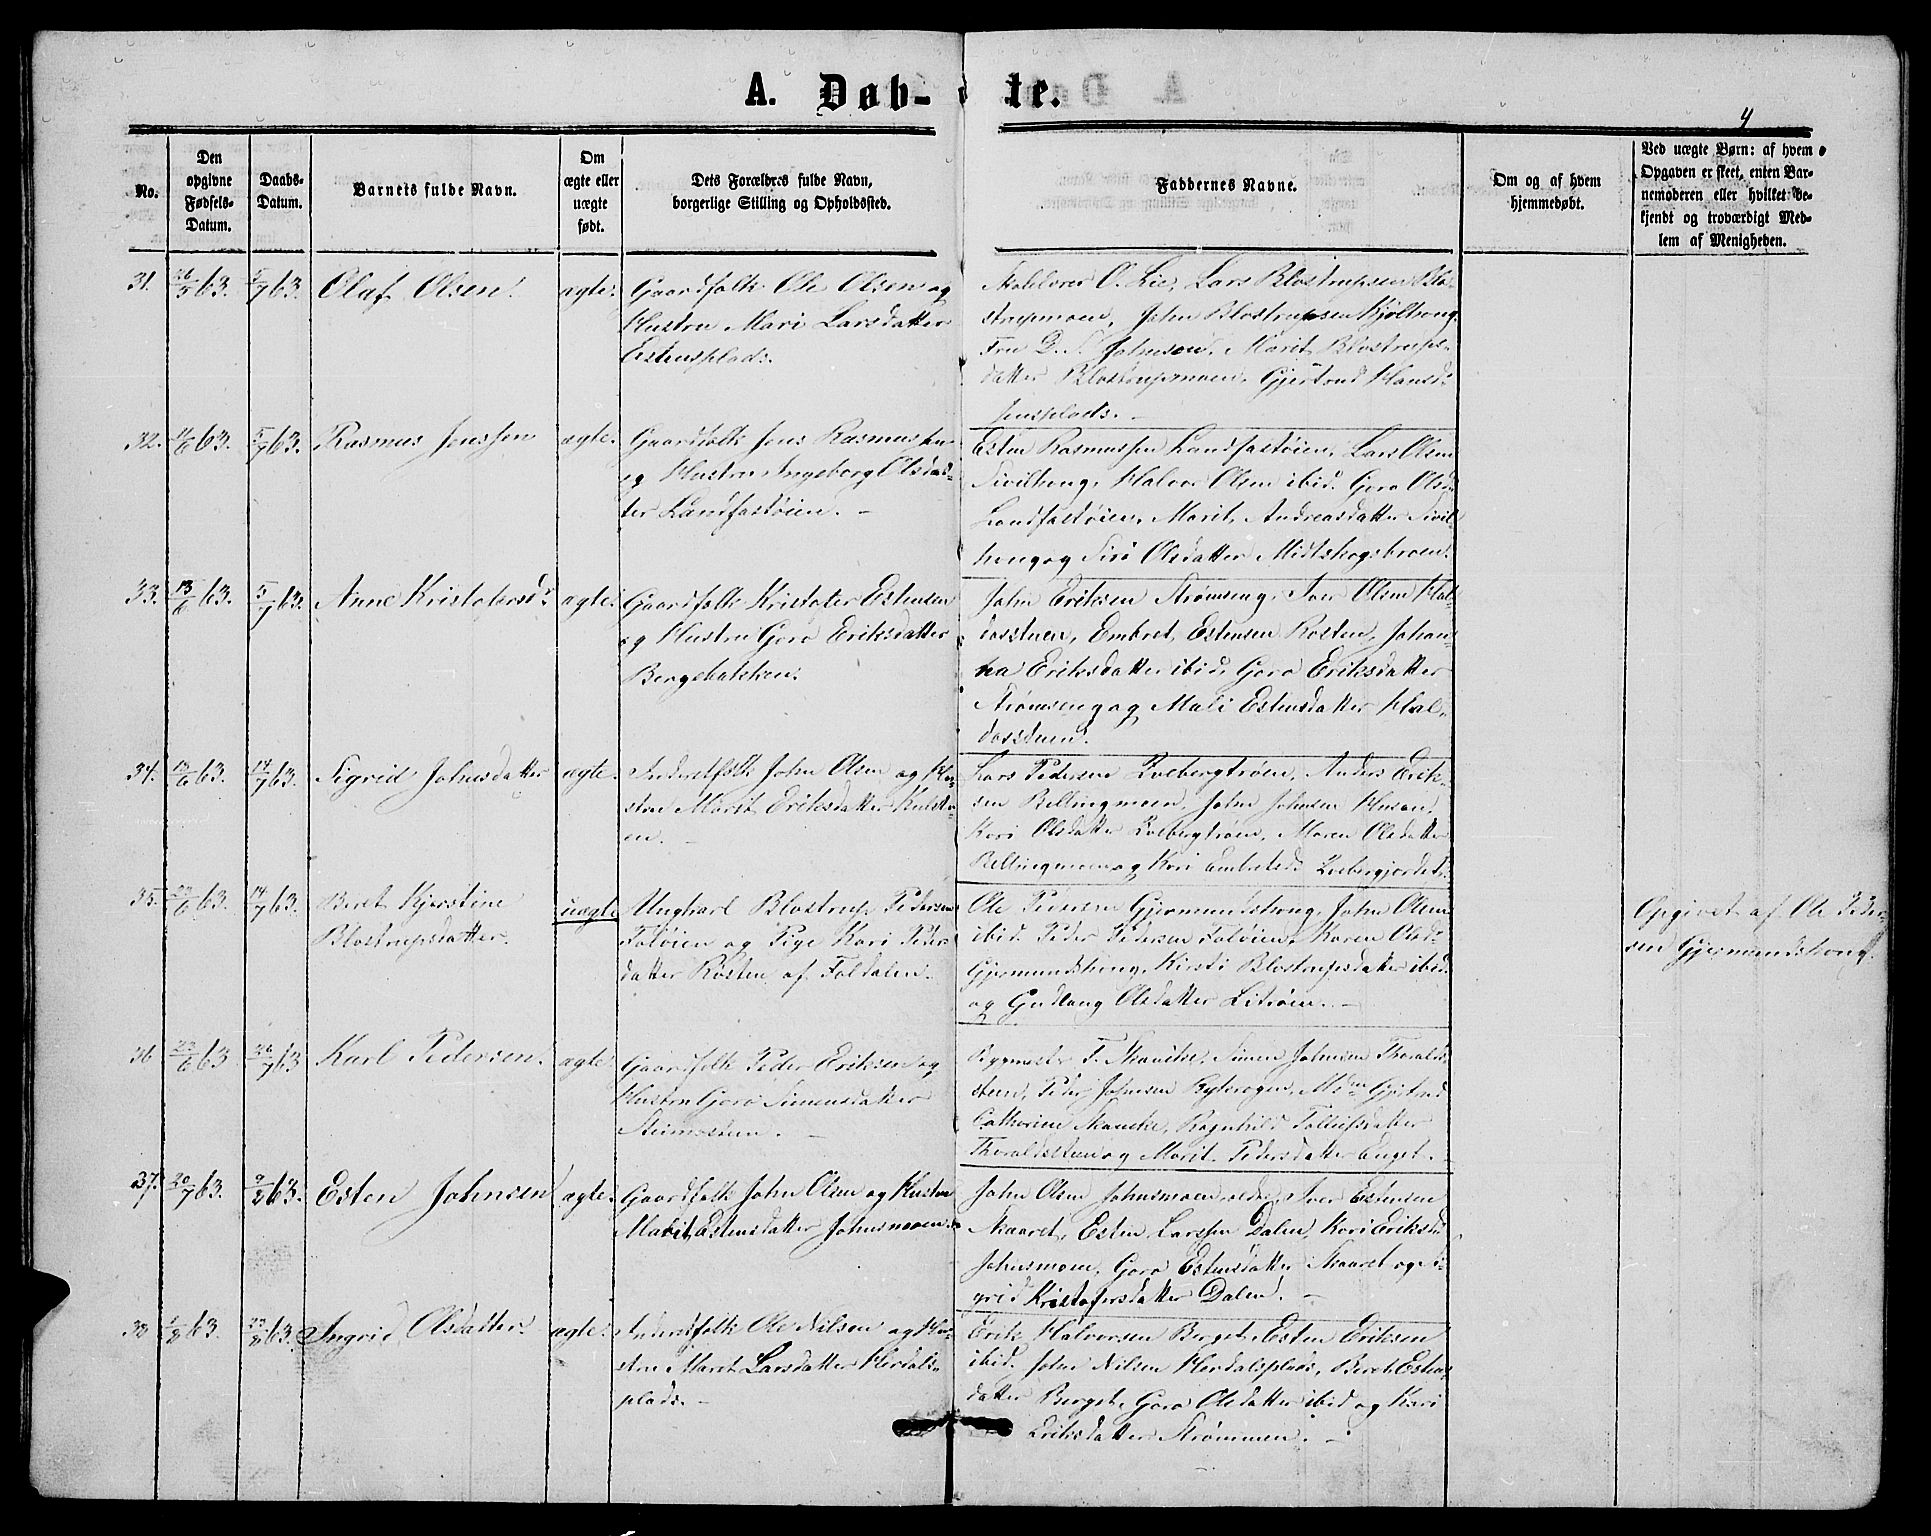 A. Døb-te.
4
No.
Den opgivne Fødsels-Datum.
Daabs-Datum.
Barnets fulde Navn.
Om ægte eller uægte født.
Dets Forældres fulde Navn,
borgerlige Stilling og Opholdssted.
Faddernes Navne.
Om og af hvem
hjemmedøbt.
Ved uægte Børn: af hvem
Opgaven er skeet, enten Bar-
nemoderen eller hvilket be-
kjendt og troværdigt Med-
lem af Menigheden.
31. 26/5 63. 5/7 63. Olaf Olsen. ægte. Gaardfolk Ole Olsen og
Hustru Mari Larsdatter
Estensplads.
O. Lie, Lars Blostrupsen Blo-
strupmoen, John Blostrupsen
Fru D. S. Johnsen, Marit Blostrups-
datter Blostrupmoen, Gjertrud Hansd.
32. 63. 5/7 63. Rasmus Jonssen ægte. Gaardfolk Jons Rasmussen
og Hustru Ingeborg Olsdat-
ter Landfastøien. -
Esten Rasmussen Landfastøien, Lars Olsen
Sivilhong, Halvor Olsen ibid. Goro Olsd.
Landfastøien, Marit Andreasdatter Sivil-
hong og Siri Olsdatter Midtskogsbroen.
33. 13/6 63. 5/7 63. Anne Kristofersdr. ægte. Gaardfolk Kristofer Estensen
og Hustru Goro Eriksdatter
Bergebakken.
John Eriksen Strømseng, Iver Olsen Hal-
dosstuen, Embret Estensen Rosten, Johan-
na Eriksdatter ibid, Goro Eriksdatter
Strømseng og Mali Estensdatter Hal-
dosstuen.
34. 13/6 63. 14/7 63. Sigrid Johnsdatter ægte. Inderstfolk John Olsen og Hu-
stru Marit Eriksdatter
en. -
Lars Pedersen Kvebergtrøen, Anders Erik-
sen Bellingmoen, John Johnsen
Kari Olsdatter Kvebergtrøen, Maren Olsdatter
Bellingmoen og Kari Embretsd. Kvebergjordet.
35. 23/6 63. 14/7 63. Beret Kjerstine
Blostrupsdatter. uægte Ungkarl Blostrup Pedersen
Foløien og Pige Kari Peders-
datter Rosten af Foldalen.
Ole Pedersen Gjermundshong, John Olsen
ibid. Peder Pedersen Foløien, Karen Olsdr
Gjermundshong, Kirsti Blostrupsdatter ibid.
og Gudlaug Olsdatter Litrøen. -
Opgivet af Ole Peder-
sen Gjermundshong.
36 23/6 63 26/7 63 Karl Pedersen. ægte Gaardfolk Peder Eriksen og
Hustru Goro Simensdatter
Steimostuen. -
Bygmester F. Skancke, Simen Johnsen Thorald-
stuen, Peder Johnsen Mdm Gjertrud
Cathrine Skancke, Ragnhild
Thoraldsstuen og Marit Pedersdatter Enget. -
37. 20/7 63. 9/8 63. Esten Johnsen ægte. Gaardfolk John Olsen og Hustru
Marit Estensdatter Johnsmoen.
John Olsen Johnsmoen Iver Estensen
Skaaret, Esten Larssen Dalen, Kari Eriksd.
Johnsmoen, Goro Estensdatter Skaaret og Si-
grid Kristofersdatter Dalen. -
38 1/8 63. 23/8 63. Ingrid Olsdatter. ægte. Inderstfolk Ole Nilsen og Hu-
stru Marit Larsdatter Herdals-
plads. -
Erik Halvorsen Berget, Esten Eriksen
ibid. John Nilsen Herdalsplads, Beret Estens-
datter Berget, Goro Olsdatter ibid og Kari
Eriksdatter Strømmen. -